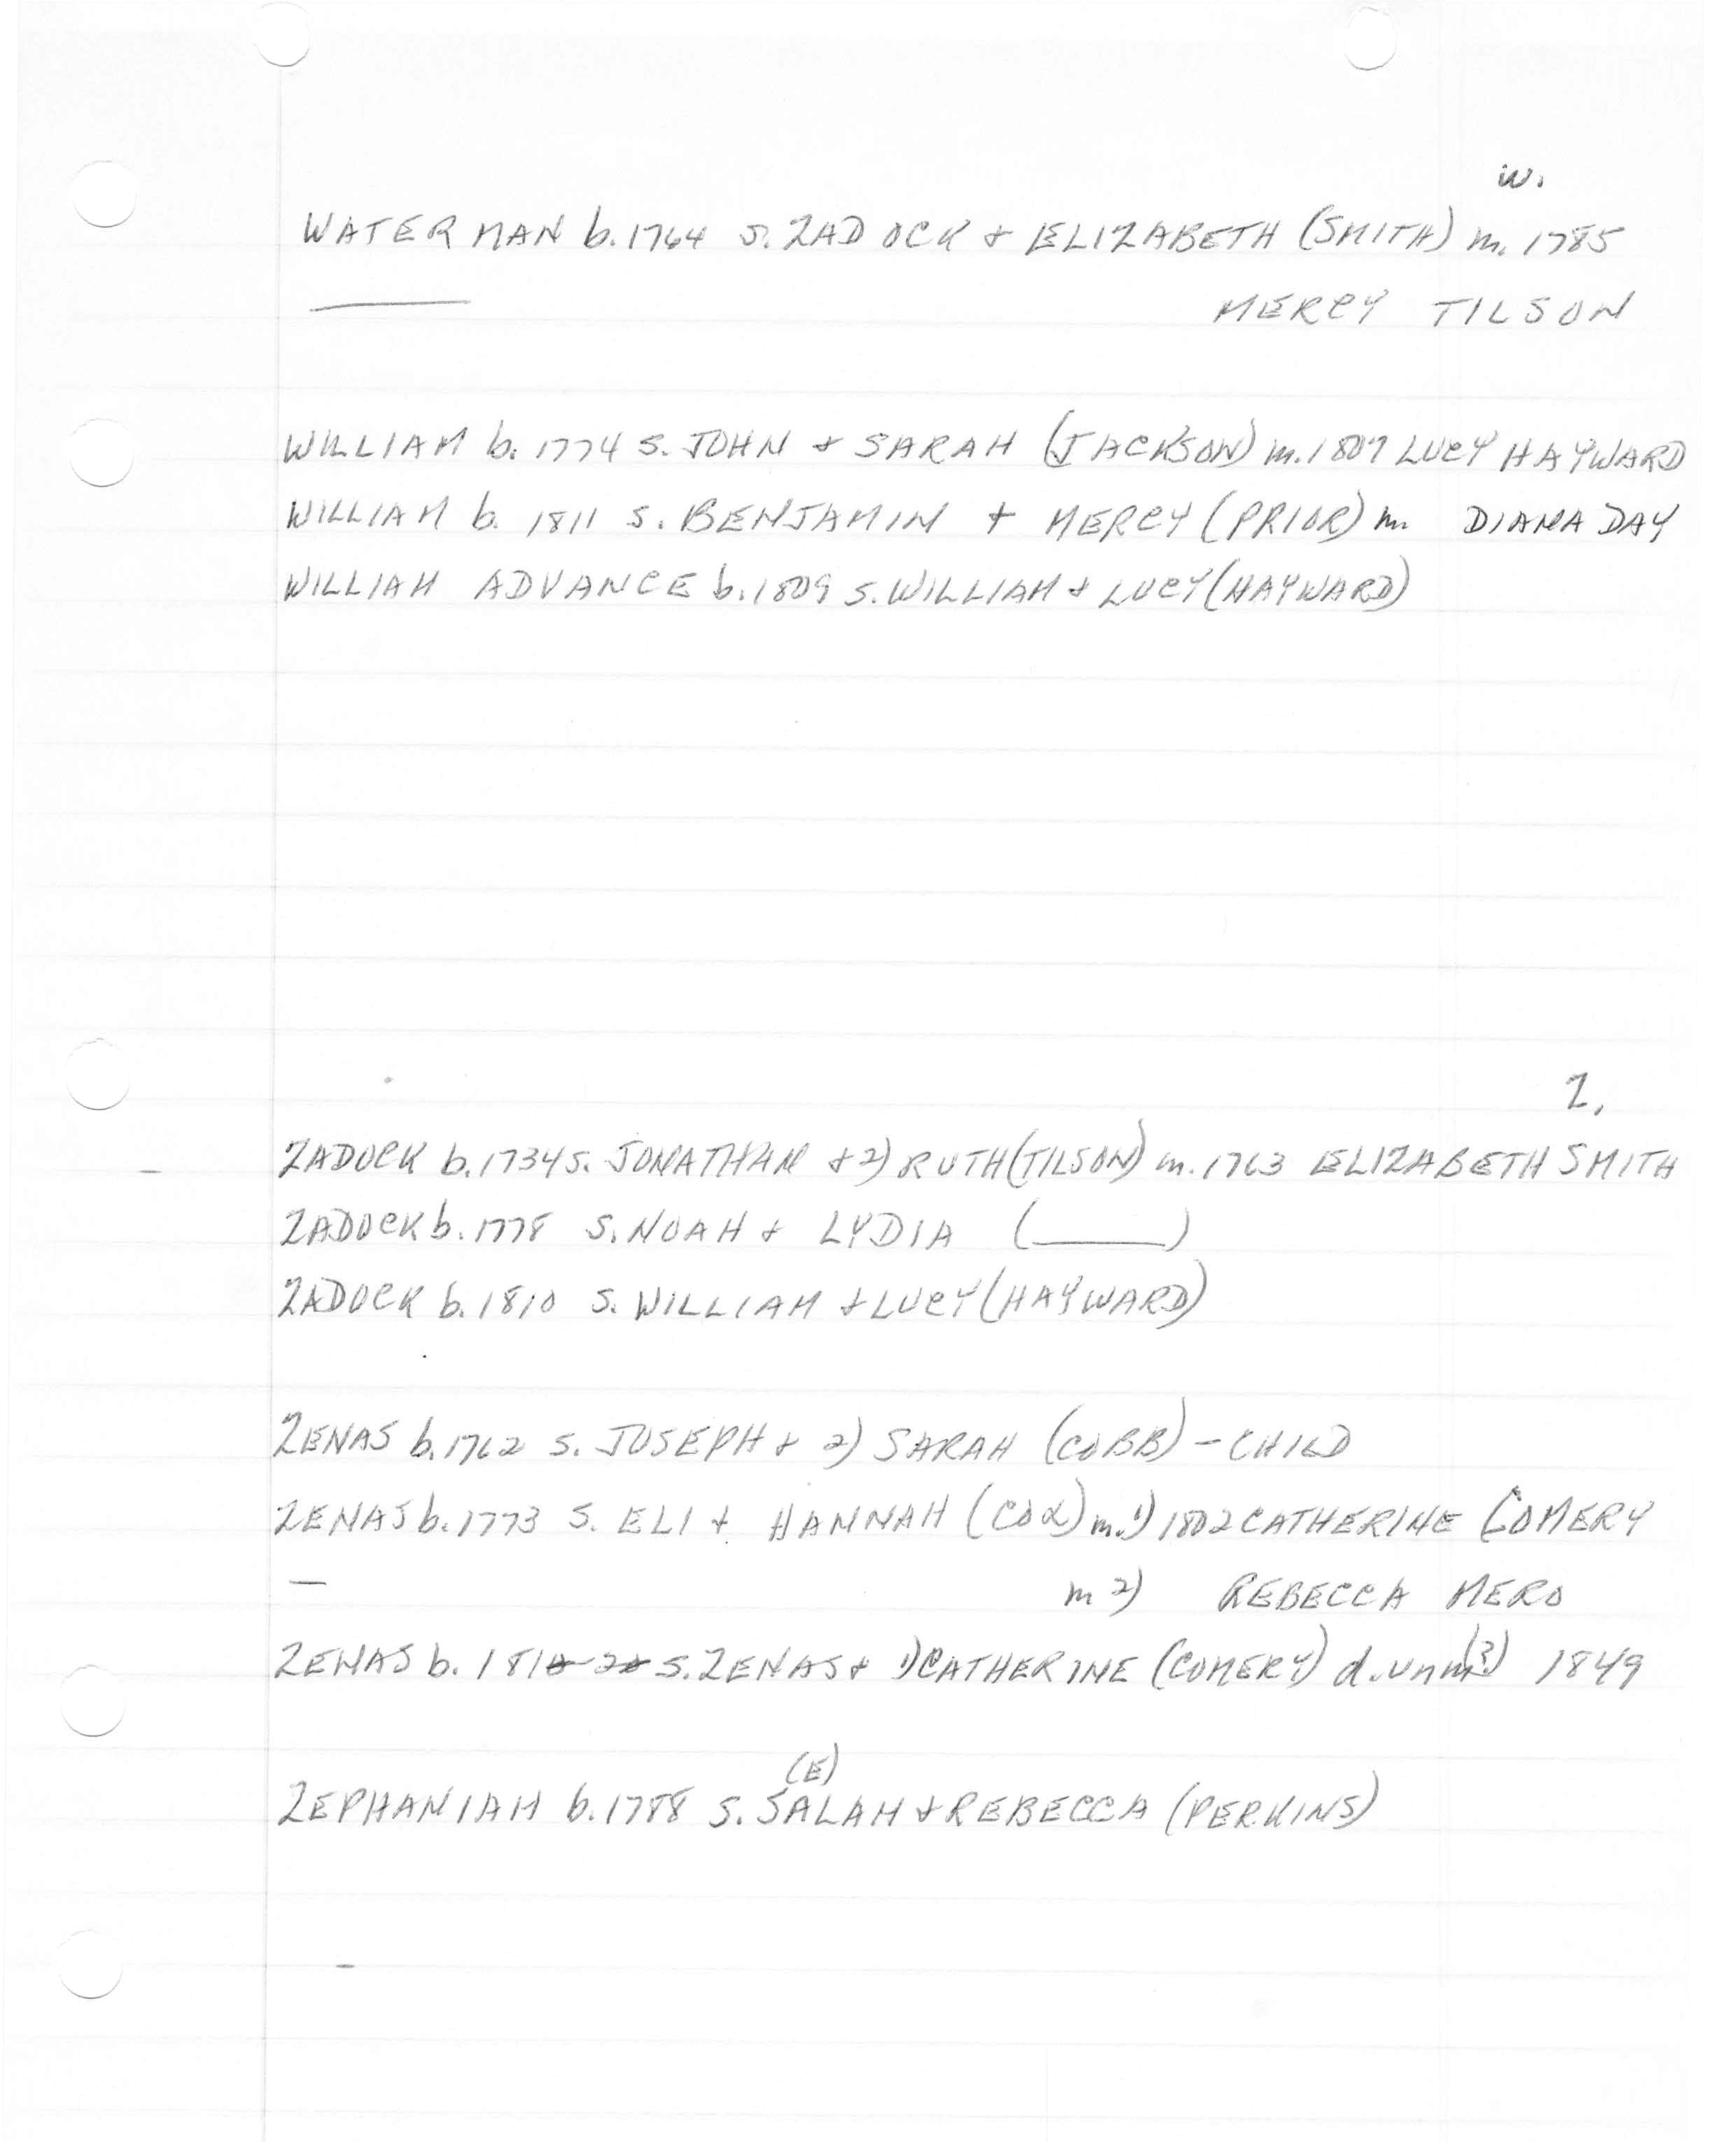 W.
WATERMAN b. 1764 S. ZADOCK + ELIZABETH (SMITH) m. 1785
MERCY TILSON
WILLIAM b. 1774 S. JOHN + SARAH (JACKSON) m. 1807 LUCY HAYWARD
WILLIAM b. 1811 S. BENJAMIN + MERCY (PRIOR) m. DIANA DAY
WILLIAM ADVANCE b. 1809 S. WILLIAM + LUCY (HAYWARD)
Z.
ZADOCK b. 1734 S. JONATHAN + 2) RUTH (TILSON) m. 1763 ELIZABETH SMITH
ZADOCK b. 1778 S. NOAH + LYDIA (______)
ZADOCK b. 1810 S. WILLIAM + LUCY (HAYWARD)
ZENAS b. 1762 S. JOSEPH + 2) SARAH (COBB) - CHILD
ZENAS b. 1773 S. ELI + HANNAH (COX) m. 1) 1802 CATHERINE COMERY
m 2) REBECCA MERO
ZENAS b. S. ZENAS + 1) CATHERINE (COMERY) d. unm (?) 1849
(E)
ZEPHANIAH b. 1788 S. SALAH + REBECCA (PERKINS)